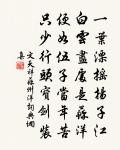 一葉漂搖揚子江
白雲盡處是蘇洋
便如伍子當年苦
只少行頭寶劍裝
文天祥蘇州洋詞典網
集